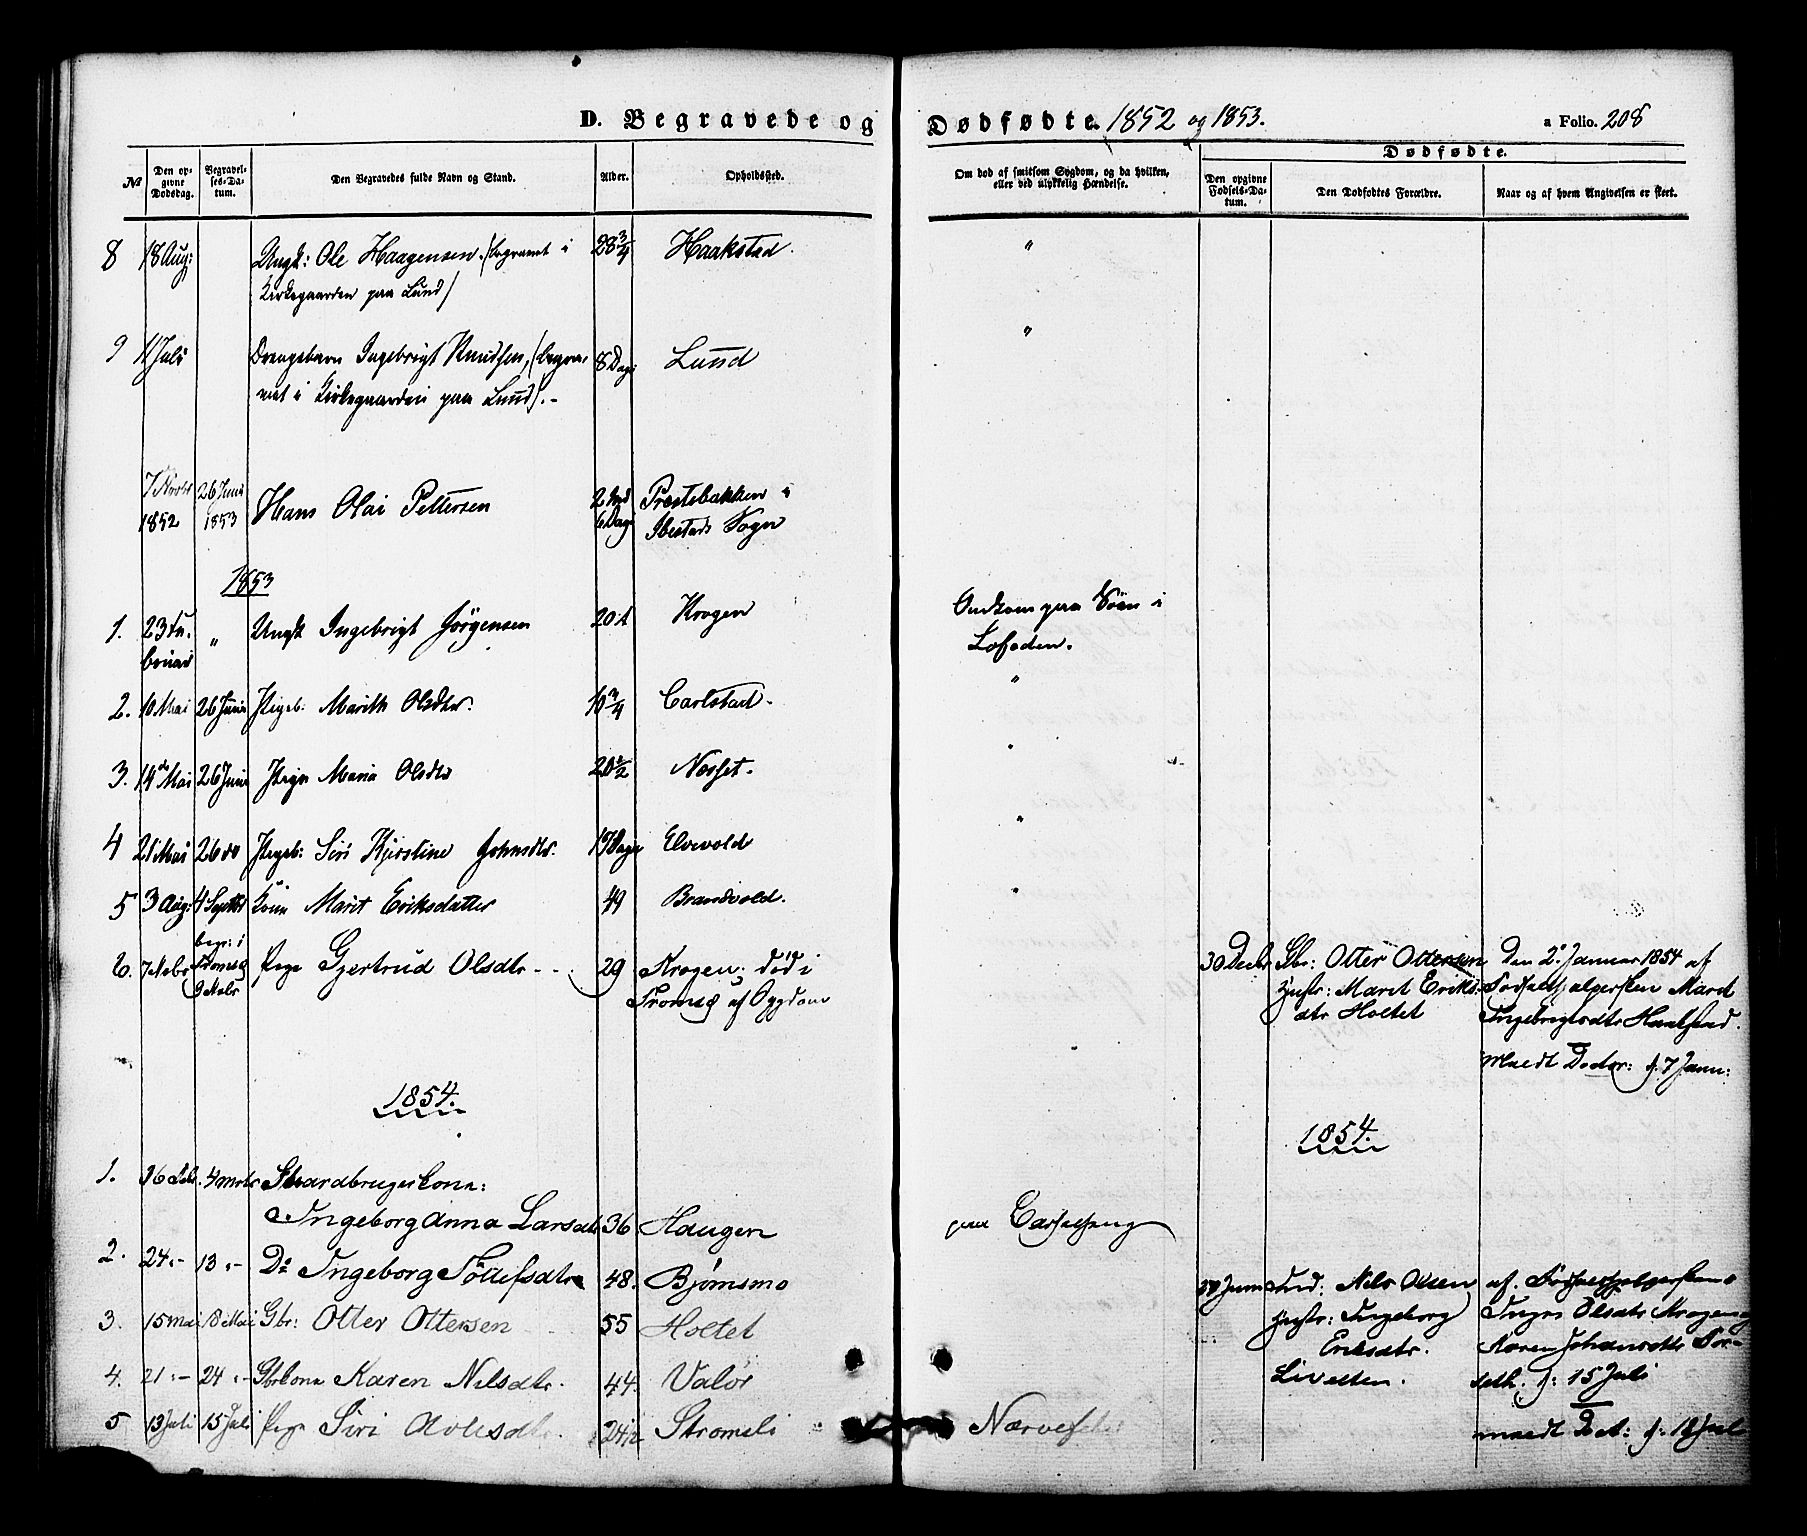 D. Begravede og Dødfødte. 1852 og 1853. a Folio. 208
№ Den opgivne Dødsdag. Begravelses-Datum. Den Begravedes fulde Navn og Stand. Alder. Opholdssted. Om død af smitsom Sygdom, og da hvilken, eller ved ulykkelig Hændelse.
Dødfødte.
Den opgivne Fødsels-Datum. Den Dødfødtes Forældre. Naar og af hvem Angivelsen er skeet.
8 18 Aug: Ungk: Ole Haagensen. (begravet i 28 3/4 Haakstad. "
Kirkegaarden paa Lund)
9 11 Juli Drengebarn Ingebrigt Knudsen, (begra- 8 Dage Lund "
vet i Kirkegaarden paa Lund). -
7 Novbr 26 Juni Hans Olai Pettersen 2 Md Præstebakken i
1852 1853 6 Dage Ibestads Sogn
1853
1. 23 Fe- " Ungk Ingebrigt Jörgensen 20 1 Krogen Omkom paa Söen i
bruar Lofoden.
2. 10 Mai 26 Junii Pigeb: Marith Olsdtr. 10 3/4 Carlstad. "
3. 14de Mai 26 Junii Pige Maria Olsdtr 20 1/2 Nosset. "
4 21 Mai 26 do Pigeb: Siri Kjerstine Johnsdtr. Dage Elvevold "
5 3 Aug: 4 Septbr Kone Marit Eriksdatter 49 Brandvold. "
6. 7 Nobr begr: i Tromsø 9 Nobr Pige Gjertrud Olsdtr - . . 29 Krogen; död i
Tromsø af Sygdom
30 Decbr Gbr: Otter Ottersen Den 2: Januar 1854 af
Hustr: Maret Eriks- Fødselshjelpersken Maret
dtr Holtet Ingebrigtsdtr
d. 7 Janu:
1854. 1854.
1. 4 Gaardbrugerkone:
Ingeborg Anna Larsdtr 36 Haugen paa Barselseng
2. 24 .- 13 .- Do Ingeborg Töllefsdtr 48. Bjørnsmo
3. 15 Mai 18 Mai Gbr: Otter Ottersen 55 Holtet
4. 21 .- 24 .- Gbrkone Karen Nilsdtr. 44. Valör
5 13 Juli 15 Juli Pige Siri 24 1/2 Stromsli
Juni Ind: Nils Olsen af Fødselshjelperskene
Hustr: Ingeborg Inger Olsdtr Krogen og
Eriksdtr. Karen Johansdtr
Livelten. d: 15 Juli
d: 18 Juli